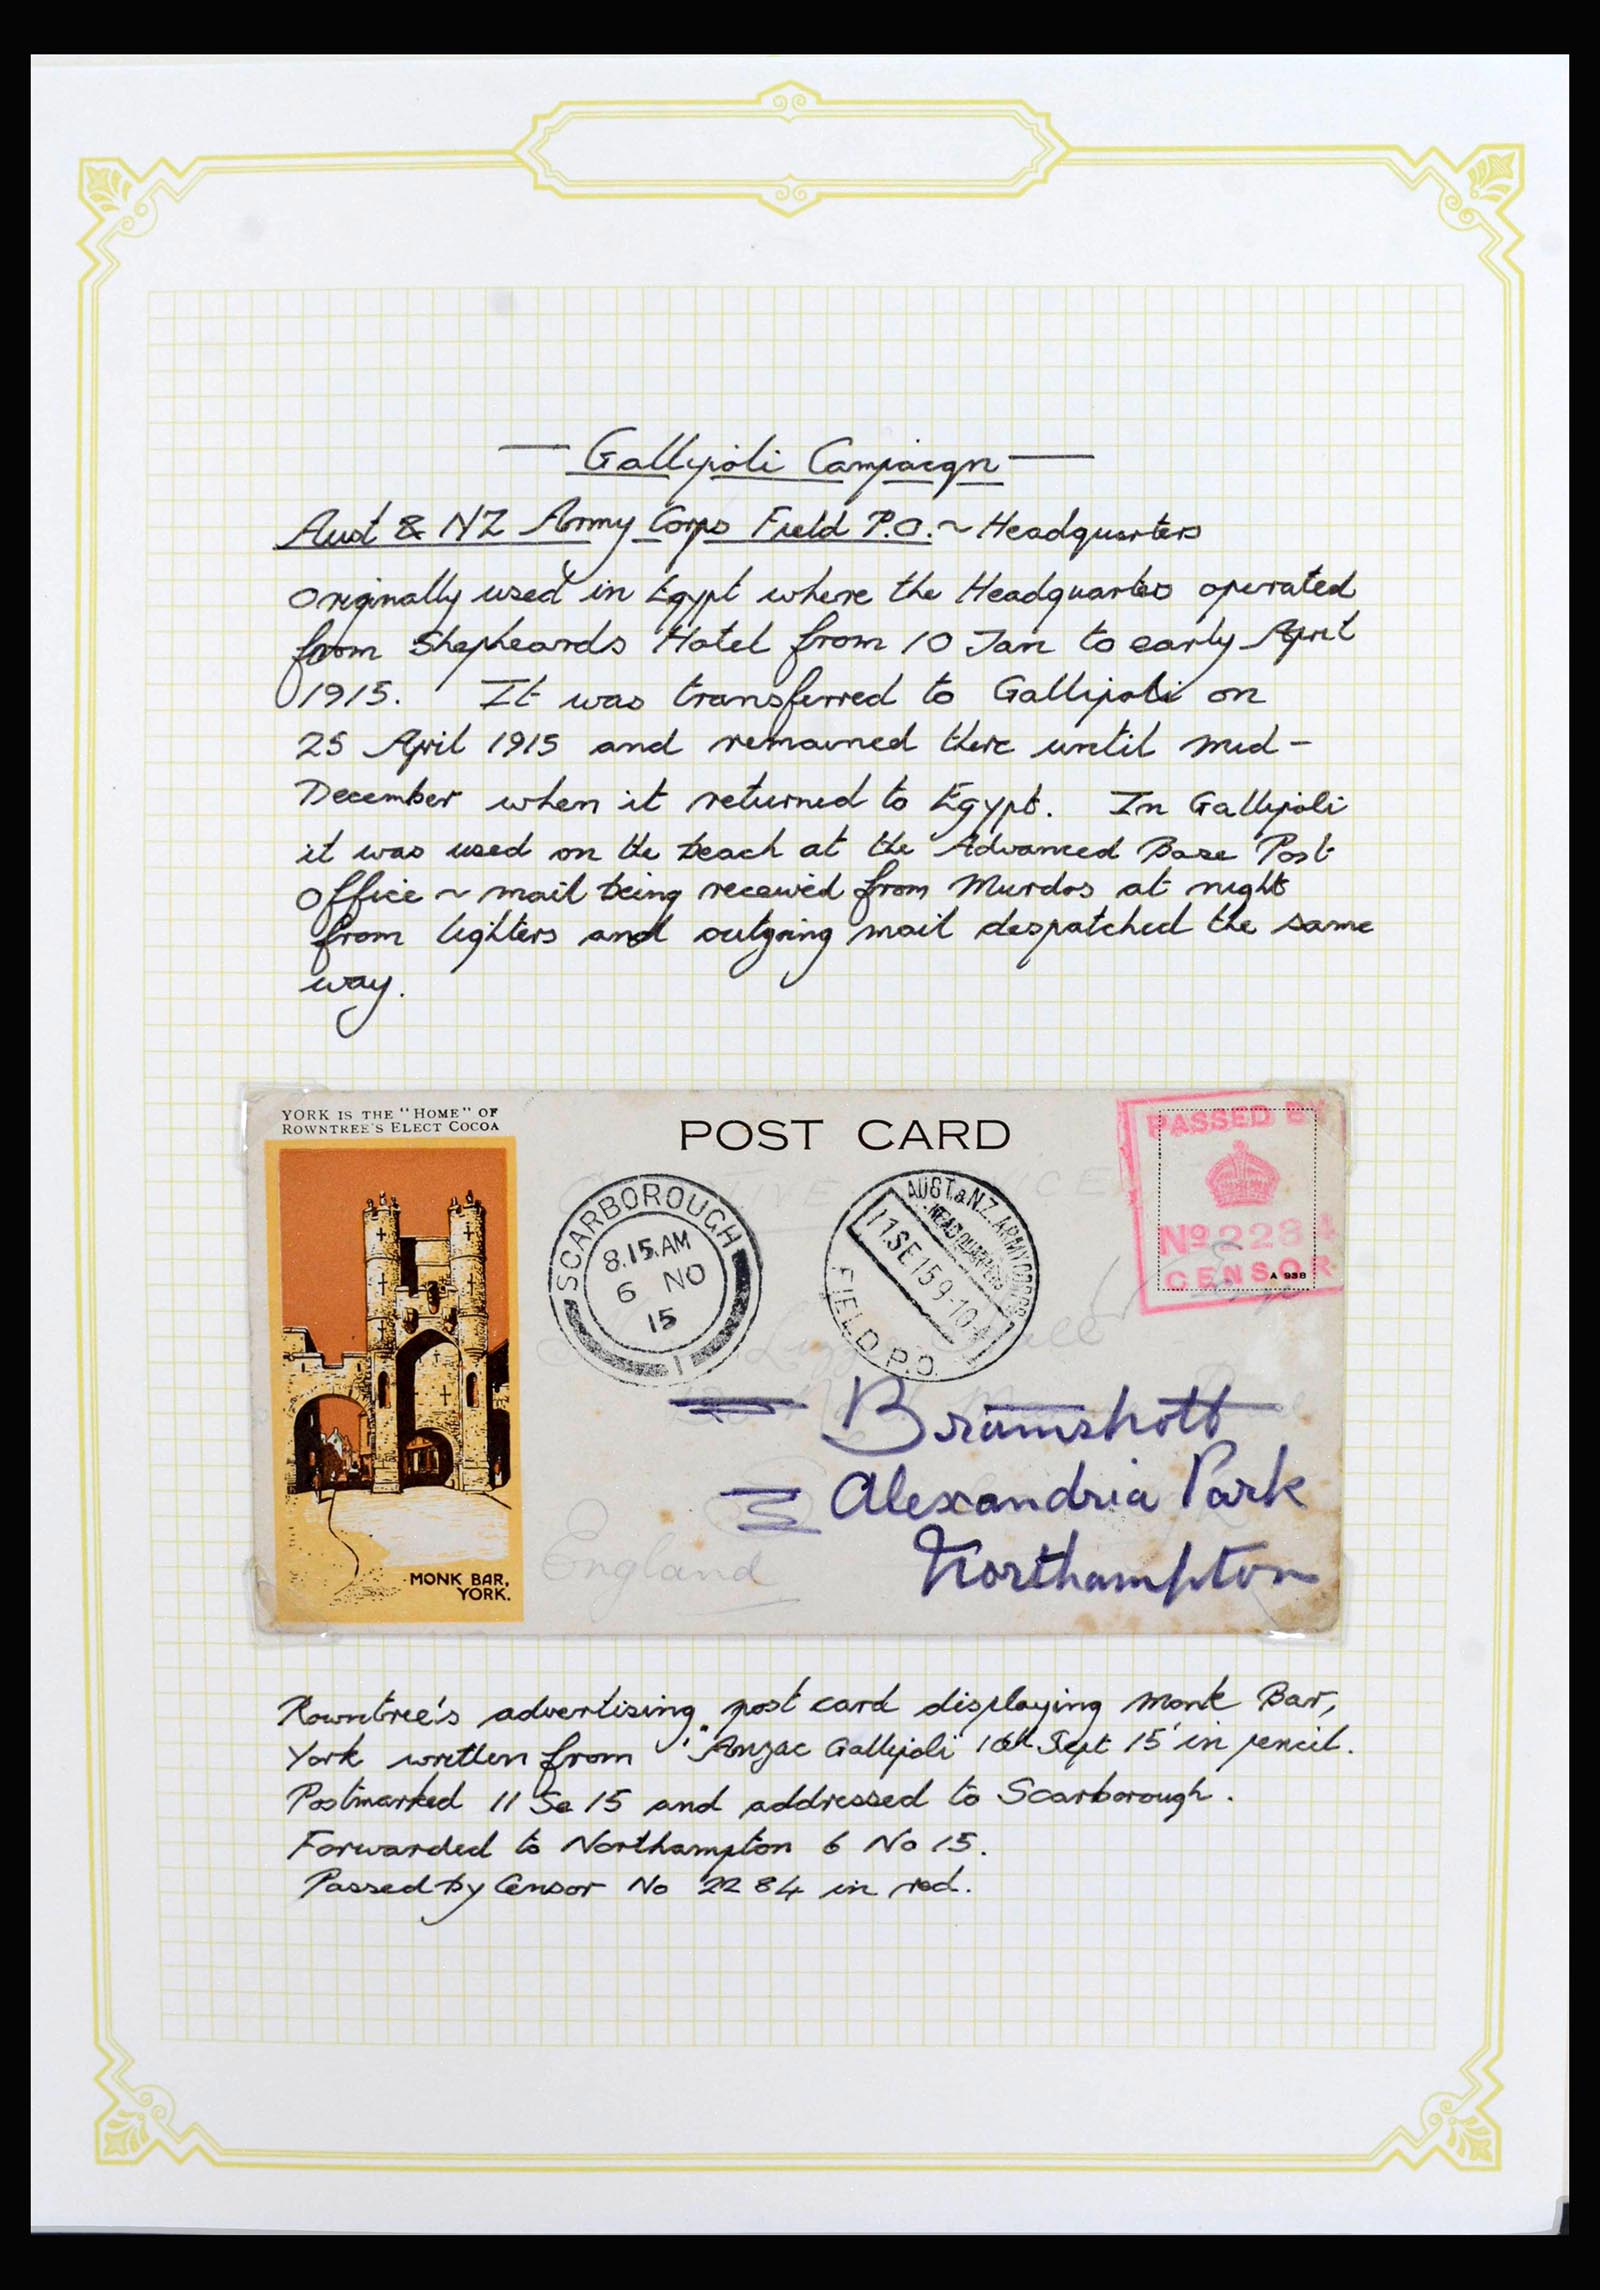 Gallipoli Campaign
Aust & NZ Army Corps Field P.O. ~ Headquarters
Originally used in Egypt where the Headquarters operated
from Shepheards Hotel from 10 Jan to early April
1915. It was transferred to Gallipoli on
25 April 1915 and remained there until mid-
December when it returned to Egypt. In Gallipoli
it was used on the beach at the Advanced Base Post
Office ~ mail being received from Murdos at night
from lighters and outgoing mail despatched the same
way.
YORK IS THE "HOME" OF
ROWNTREE'S ELECT COCOA
MONK BAR,
YORK.
POST CARD
SCARBOROUGH
8.15.AM
6 NO
15
1
AUST.& N.Z. ARMY CORPS
HEADQUARTERS
11.SE.15.9-10-A
FIELD P.O.
PASSED BY
No 2284
CENSOR
A 938
ACTIVE SERVICE
Bramshott
Alexandria Park
Northampton
England
Rowntree's advertising post card displaying Monk Bar,
York written from "Anzac Gallipoli 10th Sept 15" in pencil.
Postmarked 11 Se 15 and addressed to Scarborough.
Forwarded to Northampton 6 No 15.
Passed by Censor No 2284 in red.